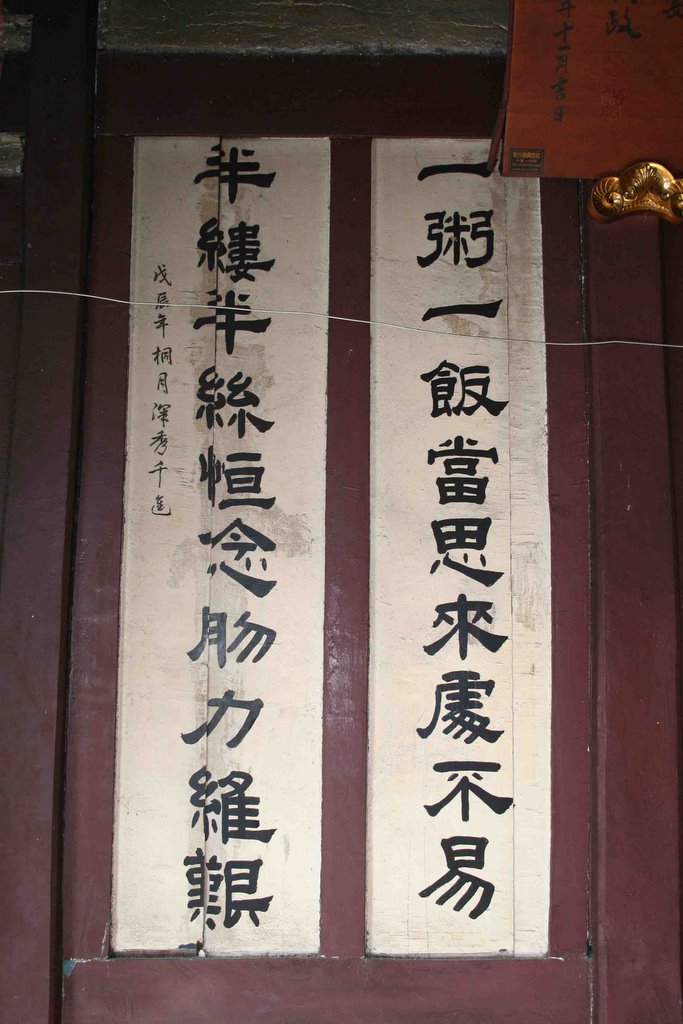 政
年十一月吉日
一粥一飯當思來處不易
半縷半絲恒念物力維艱
戊辰年桐月深秀千進